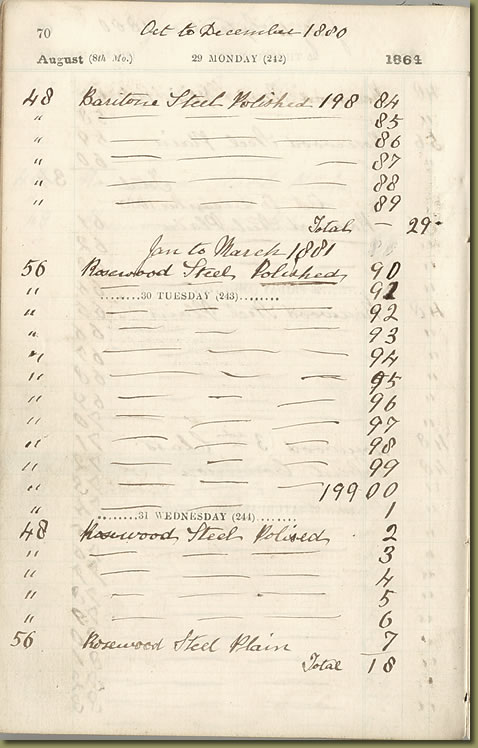 70 Oct to December 1880
August (8th Mo.) 29 MONDAY (242) 1864
48 Baritone Steel Polished 198 84
" — — — 85
" — — — 86
" — — — 87
" — — — 88
" — — — 89
Total — 29
Jan to March 1881
56 Rosewood Steel Polished 90
" ........30 TUESDAY (243)........ 91
" — — — 92
" — — — 93
" — — — 94
" — — — 95
" — — — 96
" — — — 97
" — — — 98
" — — — 99
" — — 199 00
" — — 1
........31 WEDNESDAY (244)........
48 Rosewood Steel Polised 2
" — — — 3
" — — — 4
" — — — 5
" — — — 6
56 Rosewood Steel Plain 7
Total 18